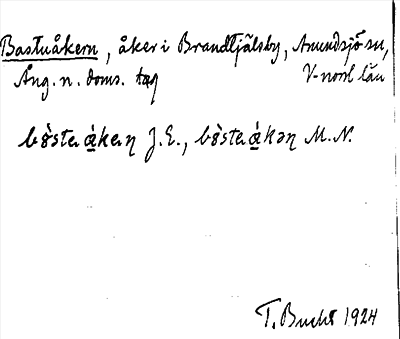 Bastuåkern, åker i Brandtjälsby, Anundsjö sn,
Ång. n. doms. tag V-norrl län
bòsta ákaɳ J.E., bòsta ákəɳ M.N.
T. Bucht 1924